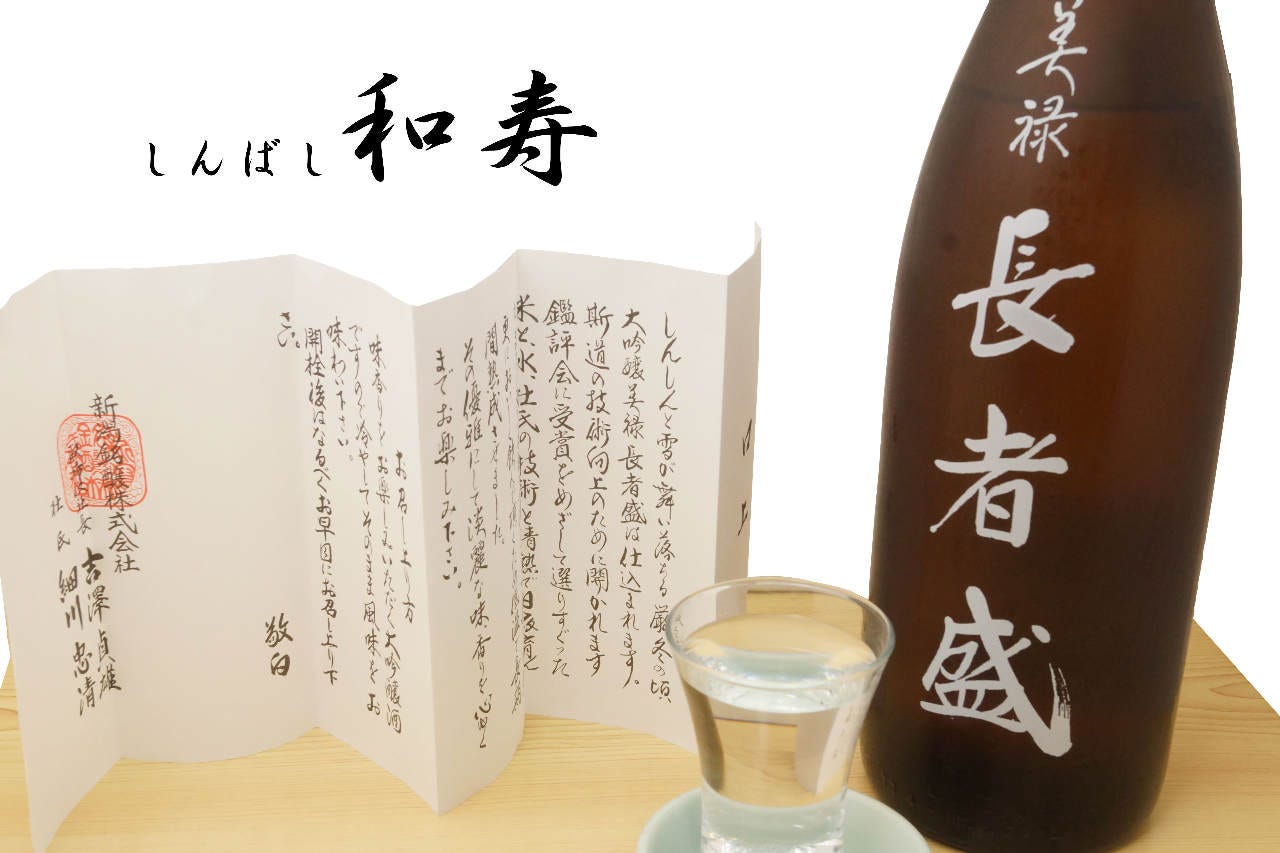 しんばし和寿
美禄
長者盛
口上
しんしんと雪が舞い落ちる厳冬の頃
大吟醸美禄長者盛は仕込まれます。
斯道の技術向上のために開かれます
鑑評会に受賞をめざして選りすぐった
米と水杜氏の技術と
間熟成させました
その優雅にして淡麗な味香りを心ゆく
までお楽しみ下さい。
お召し上り方
味香りをお楽しみいただく大吟醸酒
ですので冷やしてそのまま風味をお
味わい下さい。
開栓後はなるべくお早目にお召し上り下
さい。
敬白
新潟銘醸株式会社
吉澤貞雄
杜氏 細川忠清